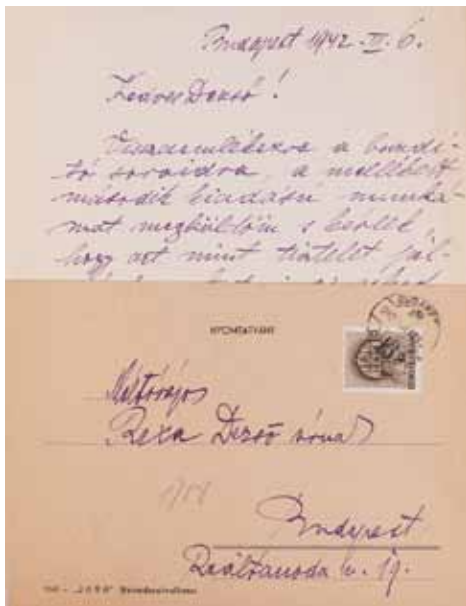 Budapest 1942. III. 6.
Kedves Dezső!
Visszaemlékezve a buzdí-
tó soraidra, a mellékelt
második kiadású munká-
mat megküldöm s kérlek,
hogy azt mint tisztelet jél-
NYOMTATVÁNY
Méltóságos
Rexa Dezső úrnak
Budapest
Reáltanoda u. 19.